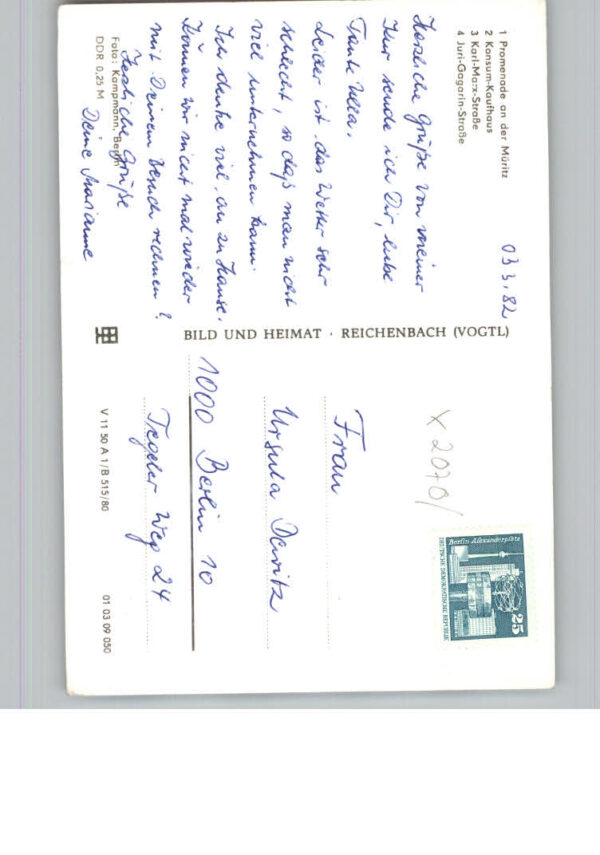 1 Promenade an der Müritz
2 Konsum-Kaufhaus
3 Karl-Marx-Straße
4 Juri-Gagarin-Straße
03 3. 82
Herzliche Grüße von meiner
Kur sende ich Dir, liebe
Tante Ulla.
Leider ist das Wetter sehr
schlecht, so daß man nicht
viel unternehmen kann.
Ich denke viel an zu Hause.
Können wir nicht mal wieder
mit Deinem Besuch rechnen?
Herzliche Grüße
Deine Marianne
Foto: Kampmann, Berlin
DDR 0,25 M
BILD UND HEIMAT · REICHENBACH (VOGTL)
X 2070/
Berlin Alexanderplatz
DEUTSCHE DEMOKRATISCHE REPUBLIK
25
Frau
Ursula Dewitz
1000 Berlin 10
Tegeler Weg 24
V 11 50 A 1/B 515/80
01 03 09 050